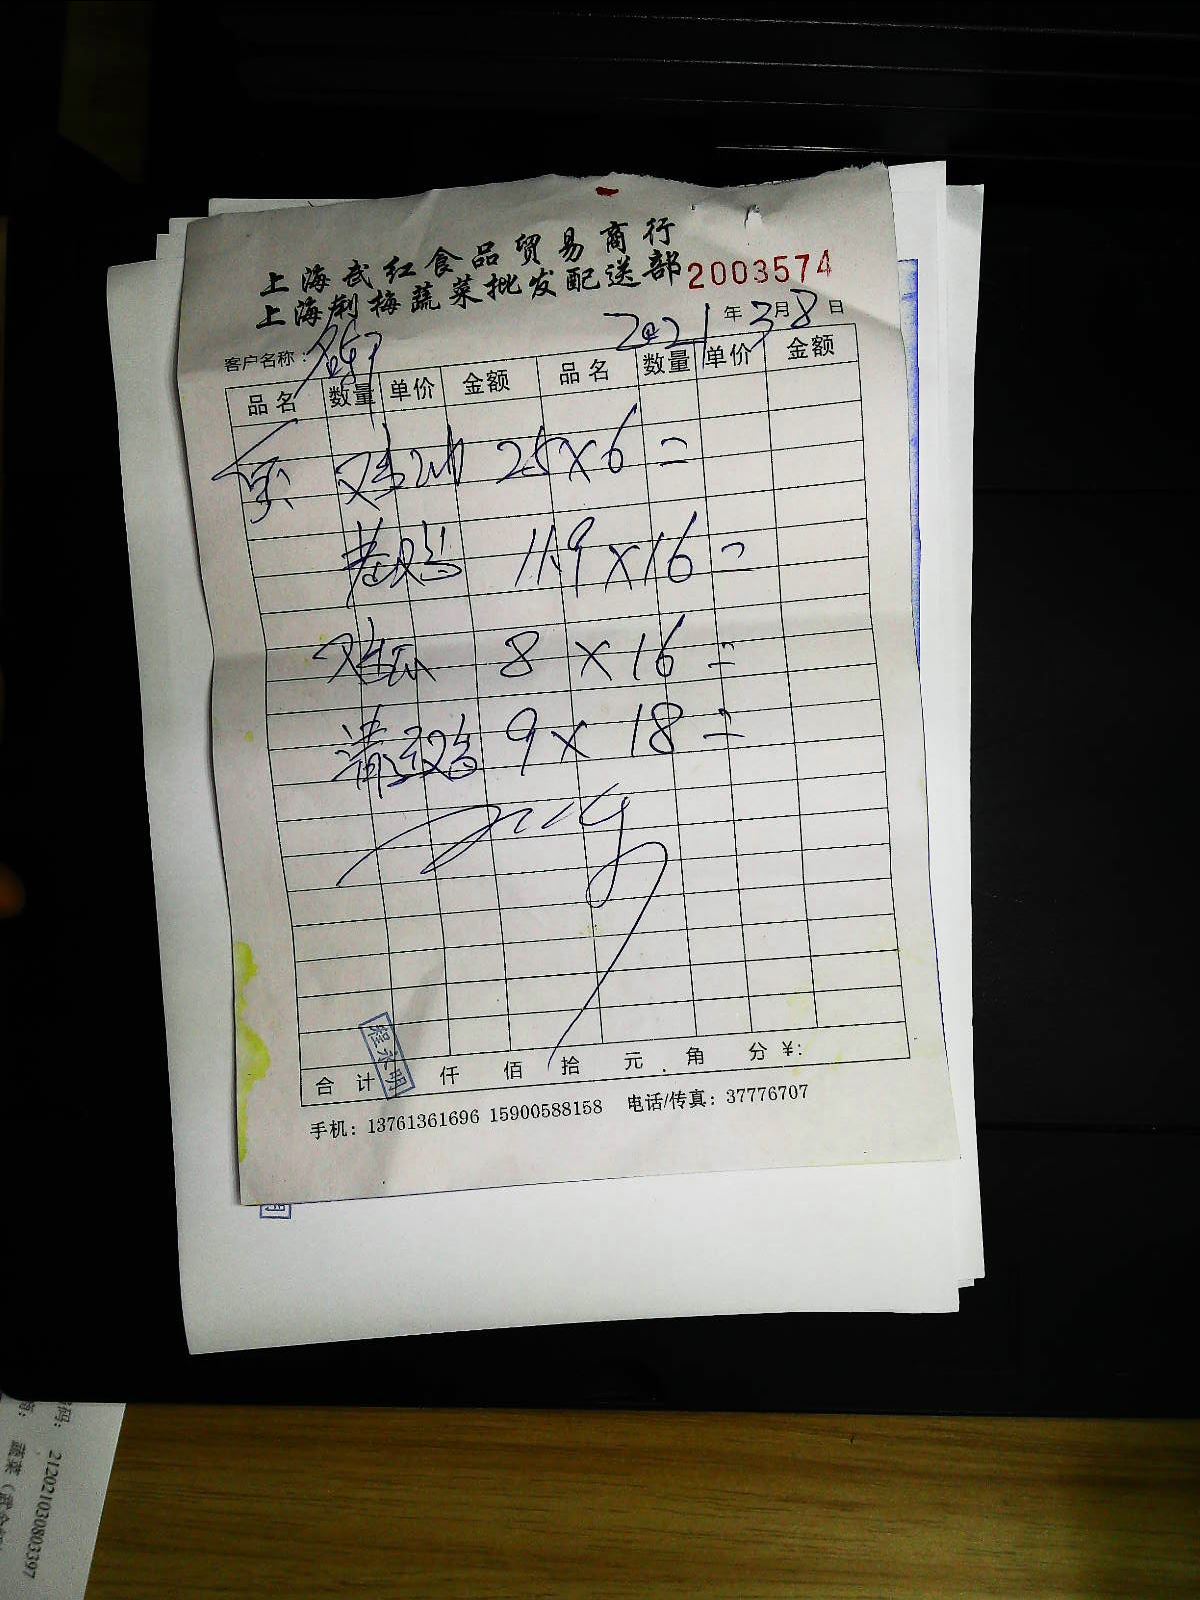 上海武红食品贸易商行
上海荆梅蔬菜批发配送部 2003574
2021年3月8日
客户名称：
品名 数量 单价 金额 品名 数量 单价 金额
25×6=
老鸡 11.9×16=
8×16=
清远鸡 9×18=
合计 仟 佰 拾 元 角 分 ¥:
程永明
手机：13761361696 15900588158 电话/传真：37776707
码： 212021030803397
蔬菜（武